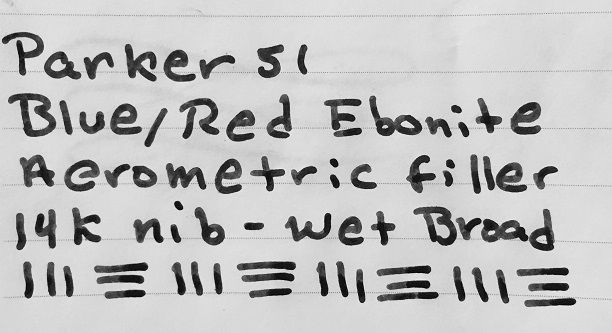 Parker 51
Blue/Red Ebonite
Aerometric filler
14k nib - wet Broad